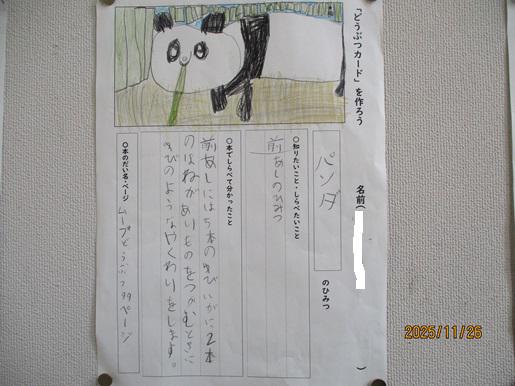 「どうぶつカード」を作ろう
名前(　　　)
パンダ
のひみつ
○知りたいこと・しらべたいこと
前あしのひみつ
○本でしらべて分かったこと
前あしには5本のゆびいがいに2本
のほねがありものをつかむときに
ゆびのようなやくわりをします。
○本のだい名・ページ
ムーブどうぶつ99ページ
2025/11/26